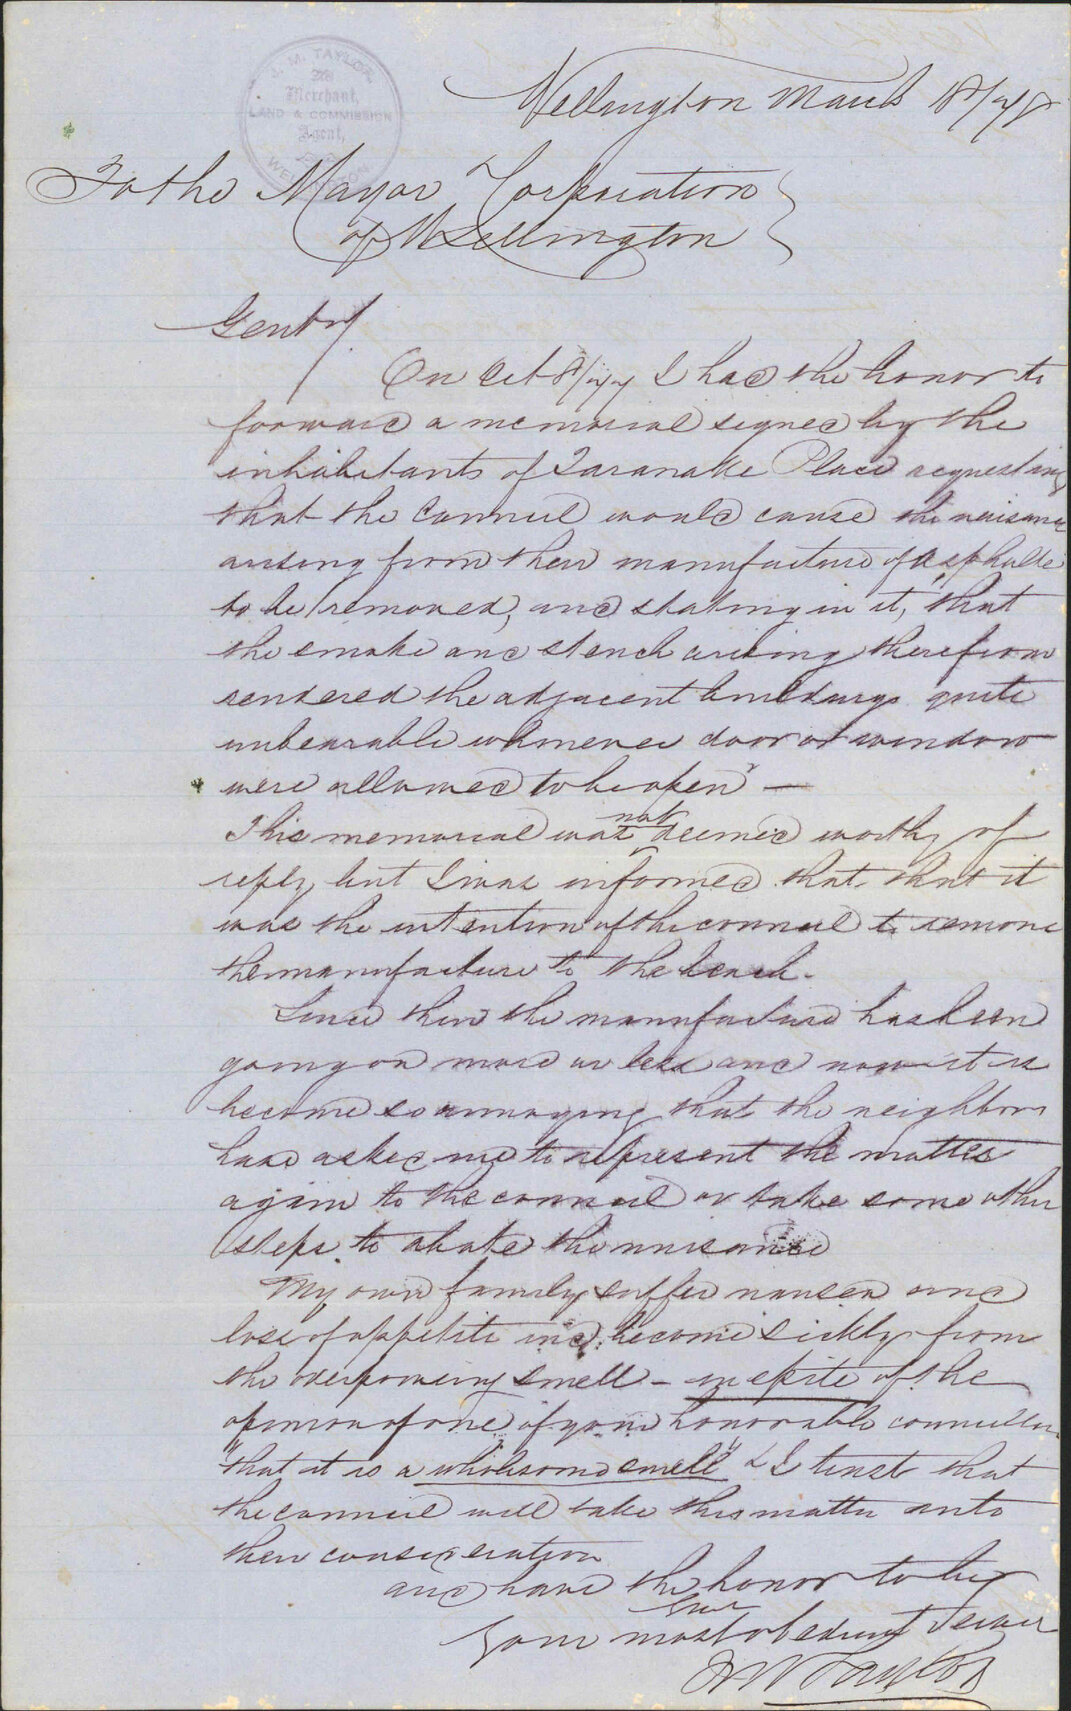 J. M. TAYLOR,
Merchant,
LAND & COMMISSION
Agent,
WELLINGTON
Wellington March 18/78
To the Mayor Corporation
of Wellington
Gentn
On Oct 8/77 I had the honor to
forward a memorial signed by the
inhabitants of Taranake Place requesting
that the Council would cause the nuisance
arising from their manufacture of asphalte
to be removed, and stating in it, "that
the smoke and stench arising therefrom
rendered the adjacent buildings quite
unbearable whenever door or window
were allowed to be open" —
This memorial was not deemed worthy of
reply, but I was informed that, that it
was the intention of the council to remove
the manufacture to the beach.
Since then the manufacture has been
going on more or less and now it is
become so annoying that the neighbors
have asked me to represent the matter
again to the council or take some other
steps to abate the nuisance
My own family suffer nausea and
lose of appetite and become sickly from
the overpowering smell – in spite of the
opinion of one of your honorable councillors
"that it is a wholesome smell" & I trust that
the council will take this matter into
their consideration
and have the honor to be
Gent
Your most obedient Servt
J M Taylor